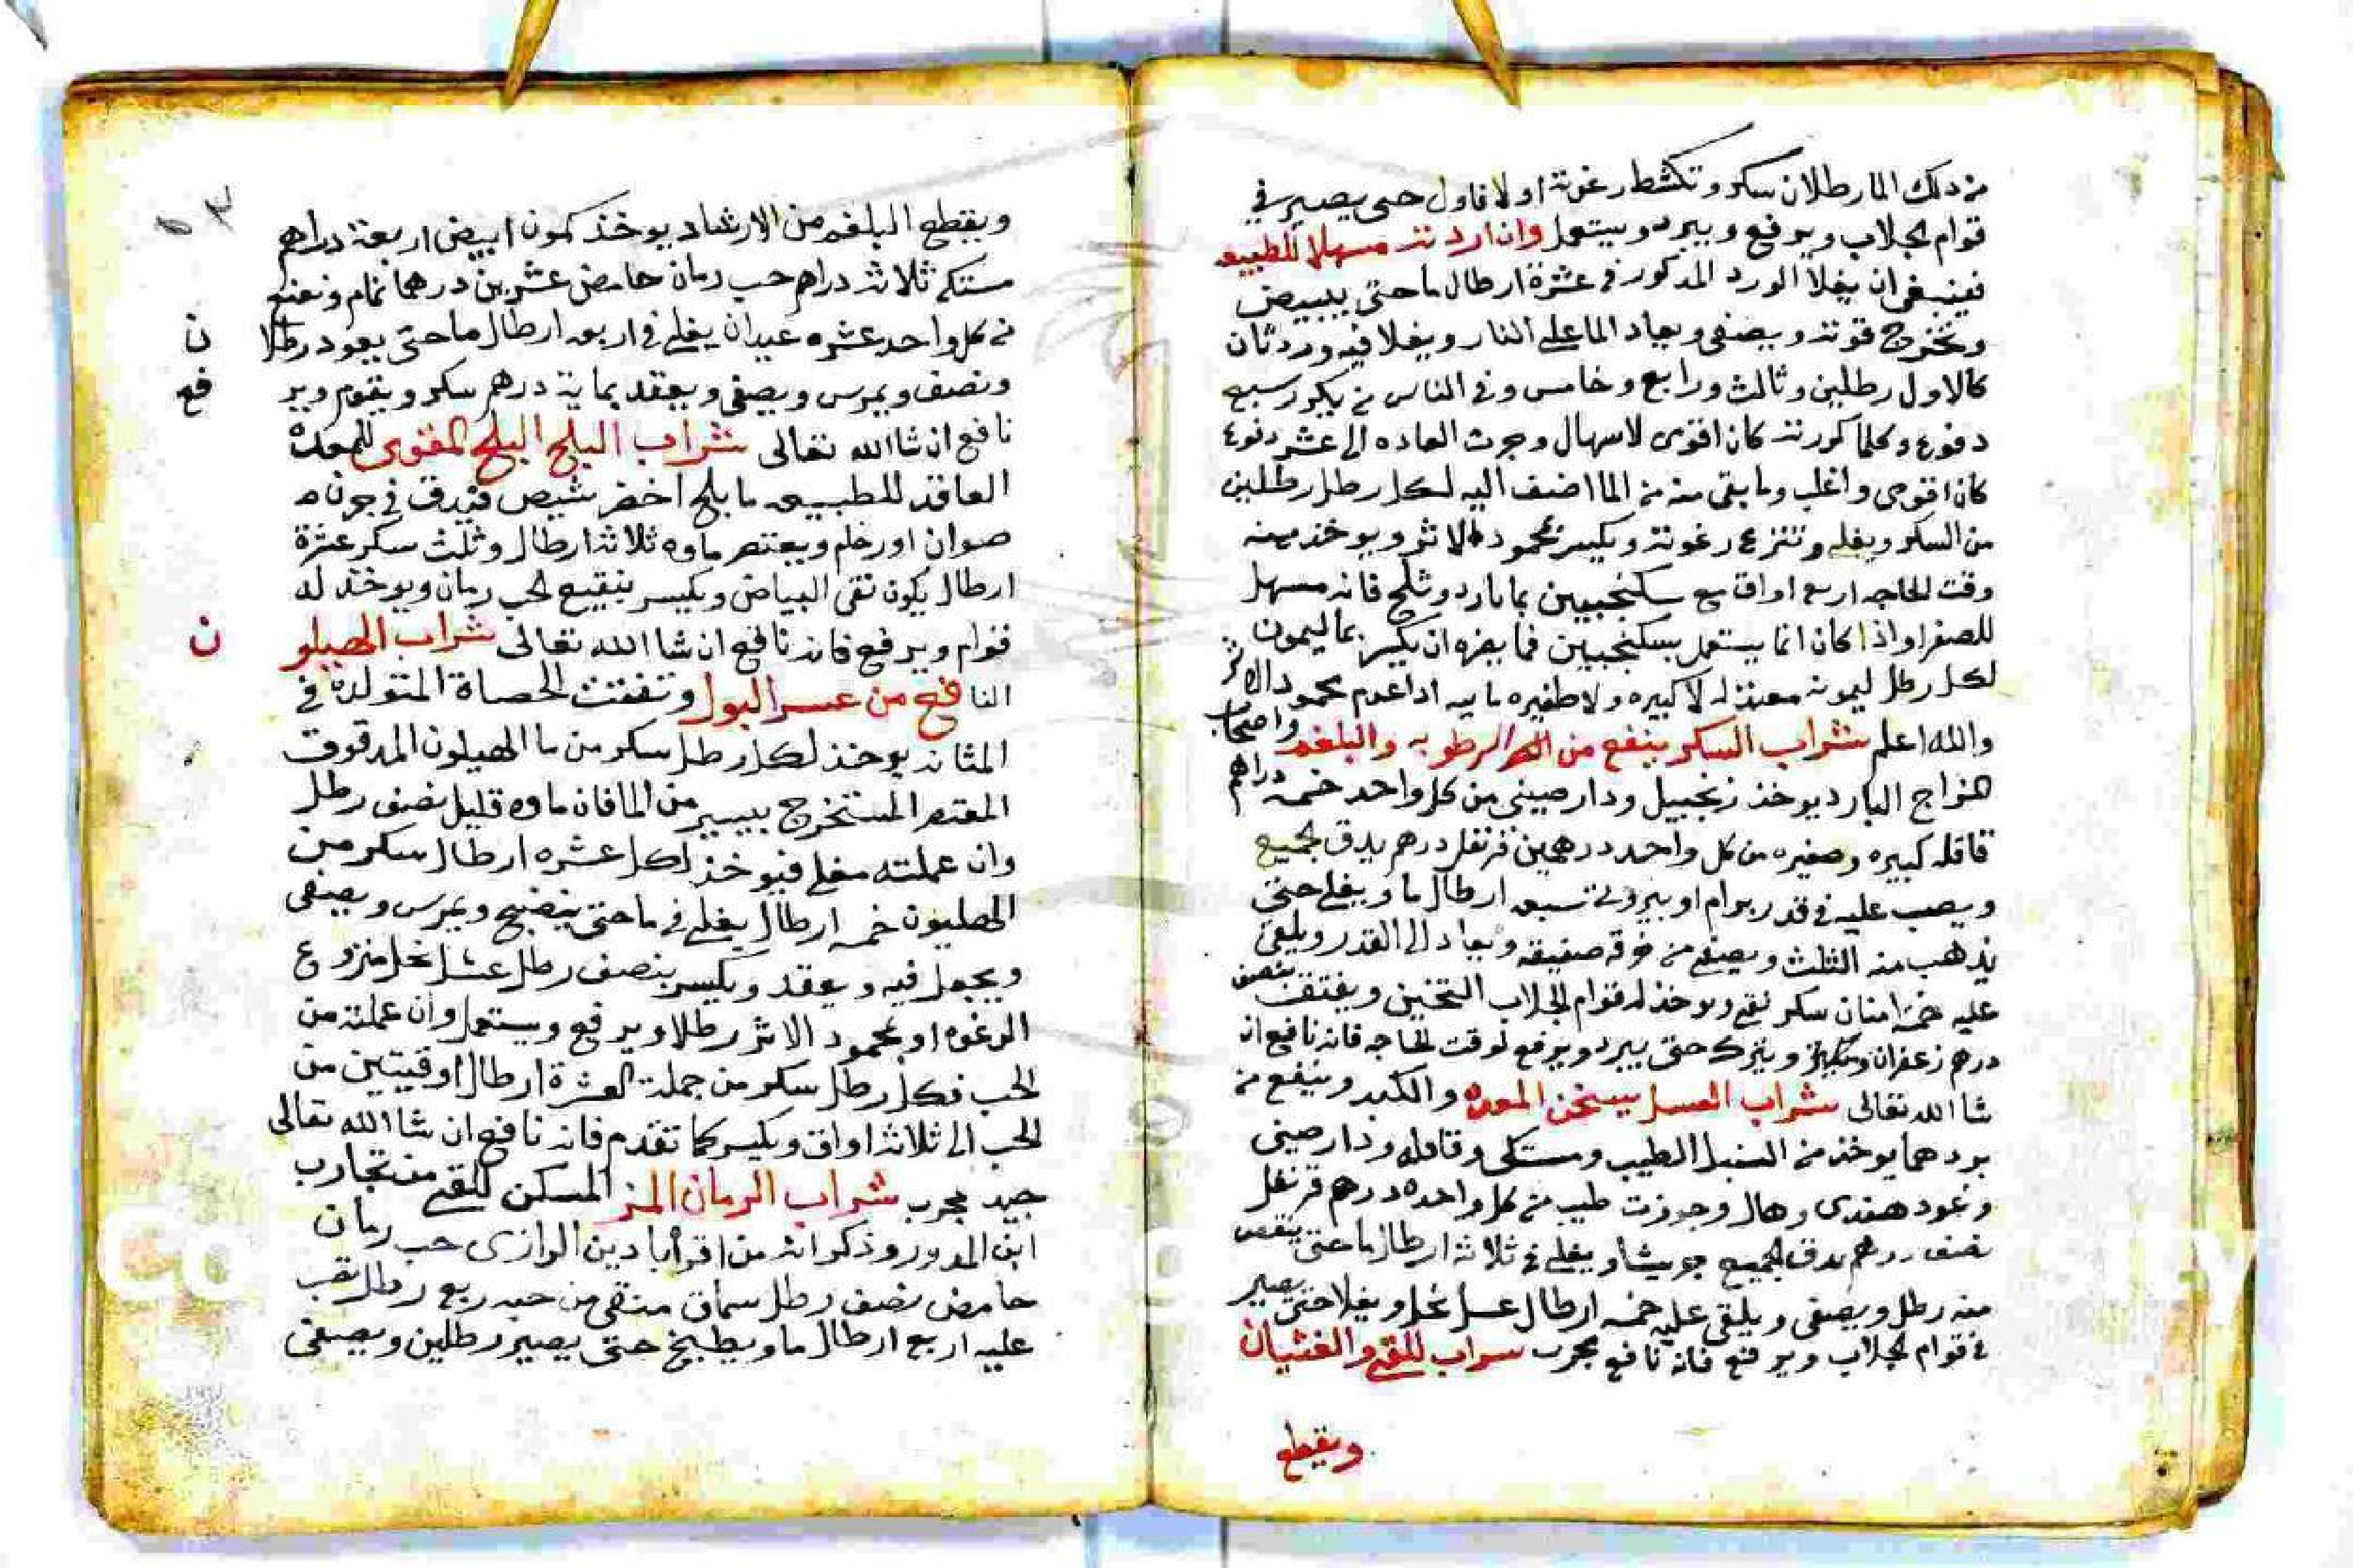 من ذلك الما رطلان سكر وتكشط رغوته اولا فاول حتى يصير في
قوام الجلاب ويرفع ويبرد ويستعمل وان اردته مسهلا للطبيعه
فينبغي ان يغلا الورد المذكور في عشرة ارطال ما حتى يبيض
وتخرج قوته ويصفى ويعاد الما على النار ويغلا فيه ورد ثان
كالاول رطلين وثالث ورابع وخامس وفي الناس من يكرر سبع
دفوع وكلما كررته كان اقوى لاسهال وجرت العاده الى عشر دفوع
كان اقوى واغلب وما بقى منه من الما اضف اليه لكل رطل رطلين
من السكر ويغلى وتنزع رغوته ويكسر بمحمودة الاثر ويوخذ منه
وقت الحاجه اربع اواق مع سكنجبين بما بارد وثلج فانه مسهل
للصفرا واذا كان انما يستعمل بسكنجبين فما يضره ان يكسر بما ليمون
لكل رطل ليمونه معتدله لا كبيره ولا صغيره ما يبه اذا عدم محمود الاثر
والله اعلم شراب السكر ينفع من الرطوبه والبلغم واصحاب
المزاج البارد يوخذ زنجبيل ودارصيني من كل واحد خمسه دراهم
قاقله كبيره وصغيره من كل واحد درهمين قرنفل درهم يدق الجميع
ويصب عليه في قدر برام او بيروتي سبعه ارطال ما ويغلى حتى
يذهب منه الثلث ويصفى من خرقه صفيقه ويعاد الى القدر ويلقى
عليه خمسة امنان سكر نقى ويوخذ له قوام الجلاب الثخين ويفتق بنصف
درهم زعفران ويترك حتى يبرد ويرفع لوقت الحاجه فانه نافع ان
شا الله تعالى شراب العسل يسخن المعده والكبد وينفع من
بردهما يوخذ من السنبل الطيب ومستكى وقاقله ودارصيني
وعود هندى وهال وجوزت طيب من كل واحده درهم قرنفل
نصف درهم يدق الجميع جريشا ويغلى في ثلاثة ارطال ما حتى ينقص
منه رطل ويصفى ويلقى عليه خمسه ارطال عسل نحل ويغلا حتى يصير
في قوام الجلاب ويرفع فانه نافع مجرب شراب للقى والغثيان
ويقطع
ويقطع البلغم من الارشاد يوخذ كمون ابيض اربعة دراهم
مستكى ثلاثة دراهم حب رمان حامض عشرين درهما نمام ونعنع
من كل واحد عشره عيدان يغلى في اربعه ارطال ما حتى يعود رطلا
ونصف ويمرس ويصفى ويعقد بماية درهم سكر ويقوم وير
فع
نافع ان شا الله تعالى شراب البلح البلح المقوى للمعدة
العاقد للطبيعه ما بلح اخضر شيص فيدق في جرن
صوان او رخام ويعتصر ماوه ثلاثة ارطال وثلث سكر عشرة
ارطال يكون نقى البياض ويكسر بنقيع لحب رمان ويوخذ له
قوام ويرفع فانه نافع ان شا الله تعالى شراب الهيلو
ن
النافع من عسر البول وتفتت الحصاة المتولدة في
المثانه يوخذ لكل رطل سكر من ما الهيلون المدقوق
المعتصر المستخرج بيسير من الما فان ماوه قليل نصف رطل
وان عملته مغلى فيوخذ لكل عشره ارطال سكر من
الهليون خمسه ارطال يغلى في ما حتى ينضج ويمرس ويصفى
ويجعل فيه ويعقد ويكسر بنصف رطل عسل نحل منزوع
الرغوه او بمحمود الاثر رطلا ويرفع ويستعمل وان عملته من
الحب فكل رطل سكر من جملة العشرة ارطال اوقيتين من
الحب الى ثلاثة اواق ويكسر كما تقدم فانه نافع ان شا الله تعالى
جيد مجرب شراب الرمان المز المسكن للقى من تجارب
ابن المدور وذكر انه من اقراباذين الرازى حب رمان
حامض نصف رطل سماق منتقى من حبه ربع رطل يصب
عليه اربع ارطال ما ويطبخ حتى يصير رطلين ويصفى